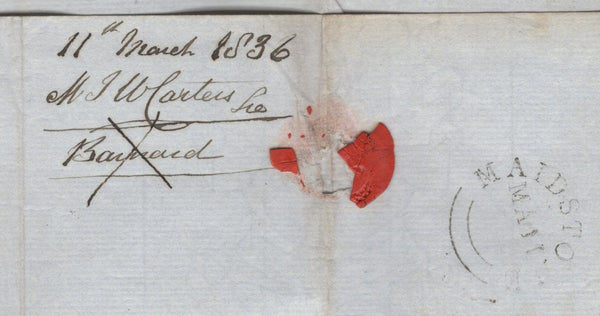 11th March 1836
M J W Carters
Barnard
MAIDSTO
MA